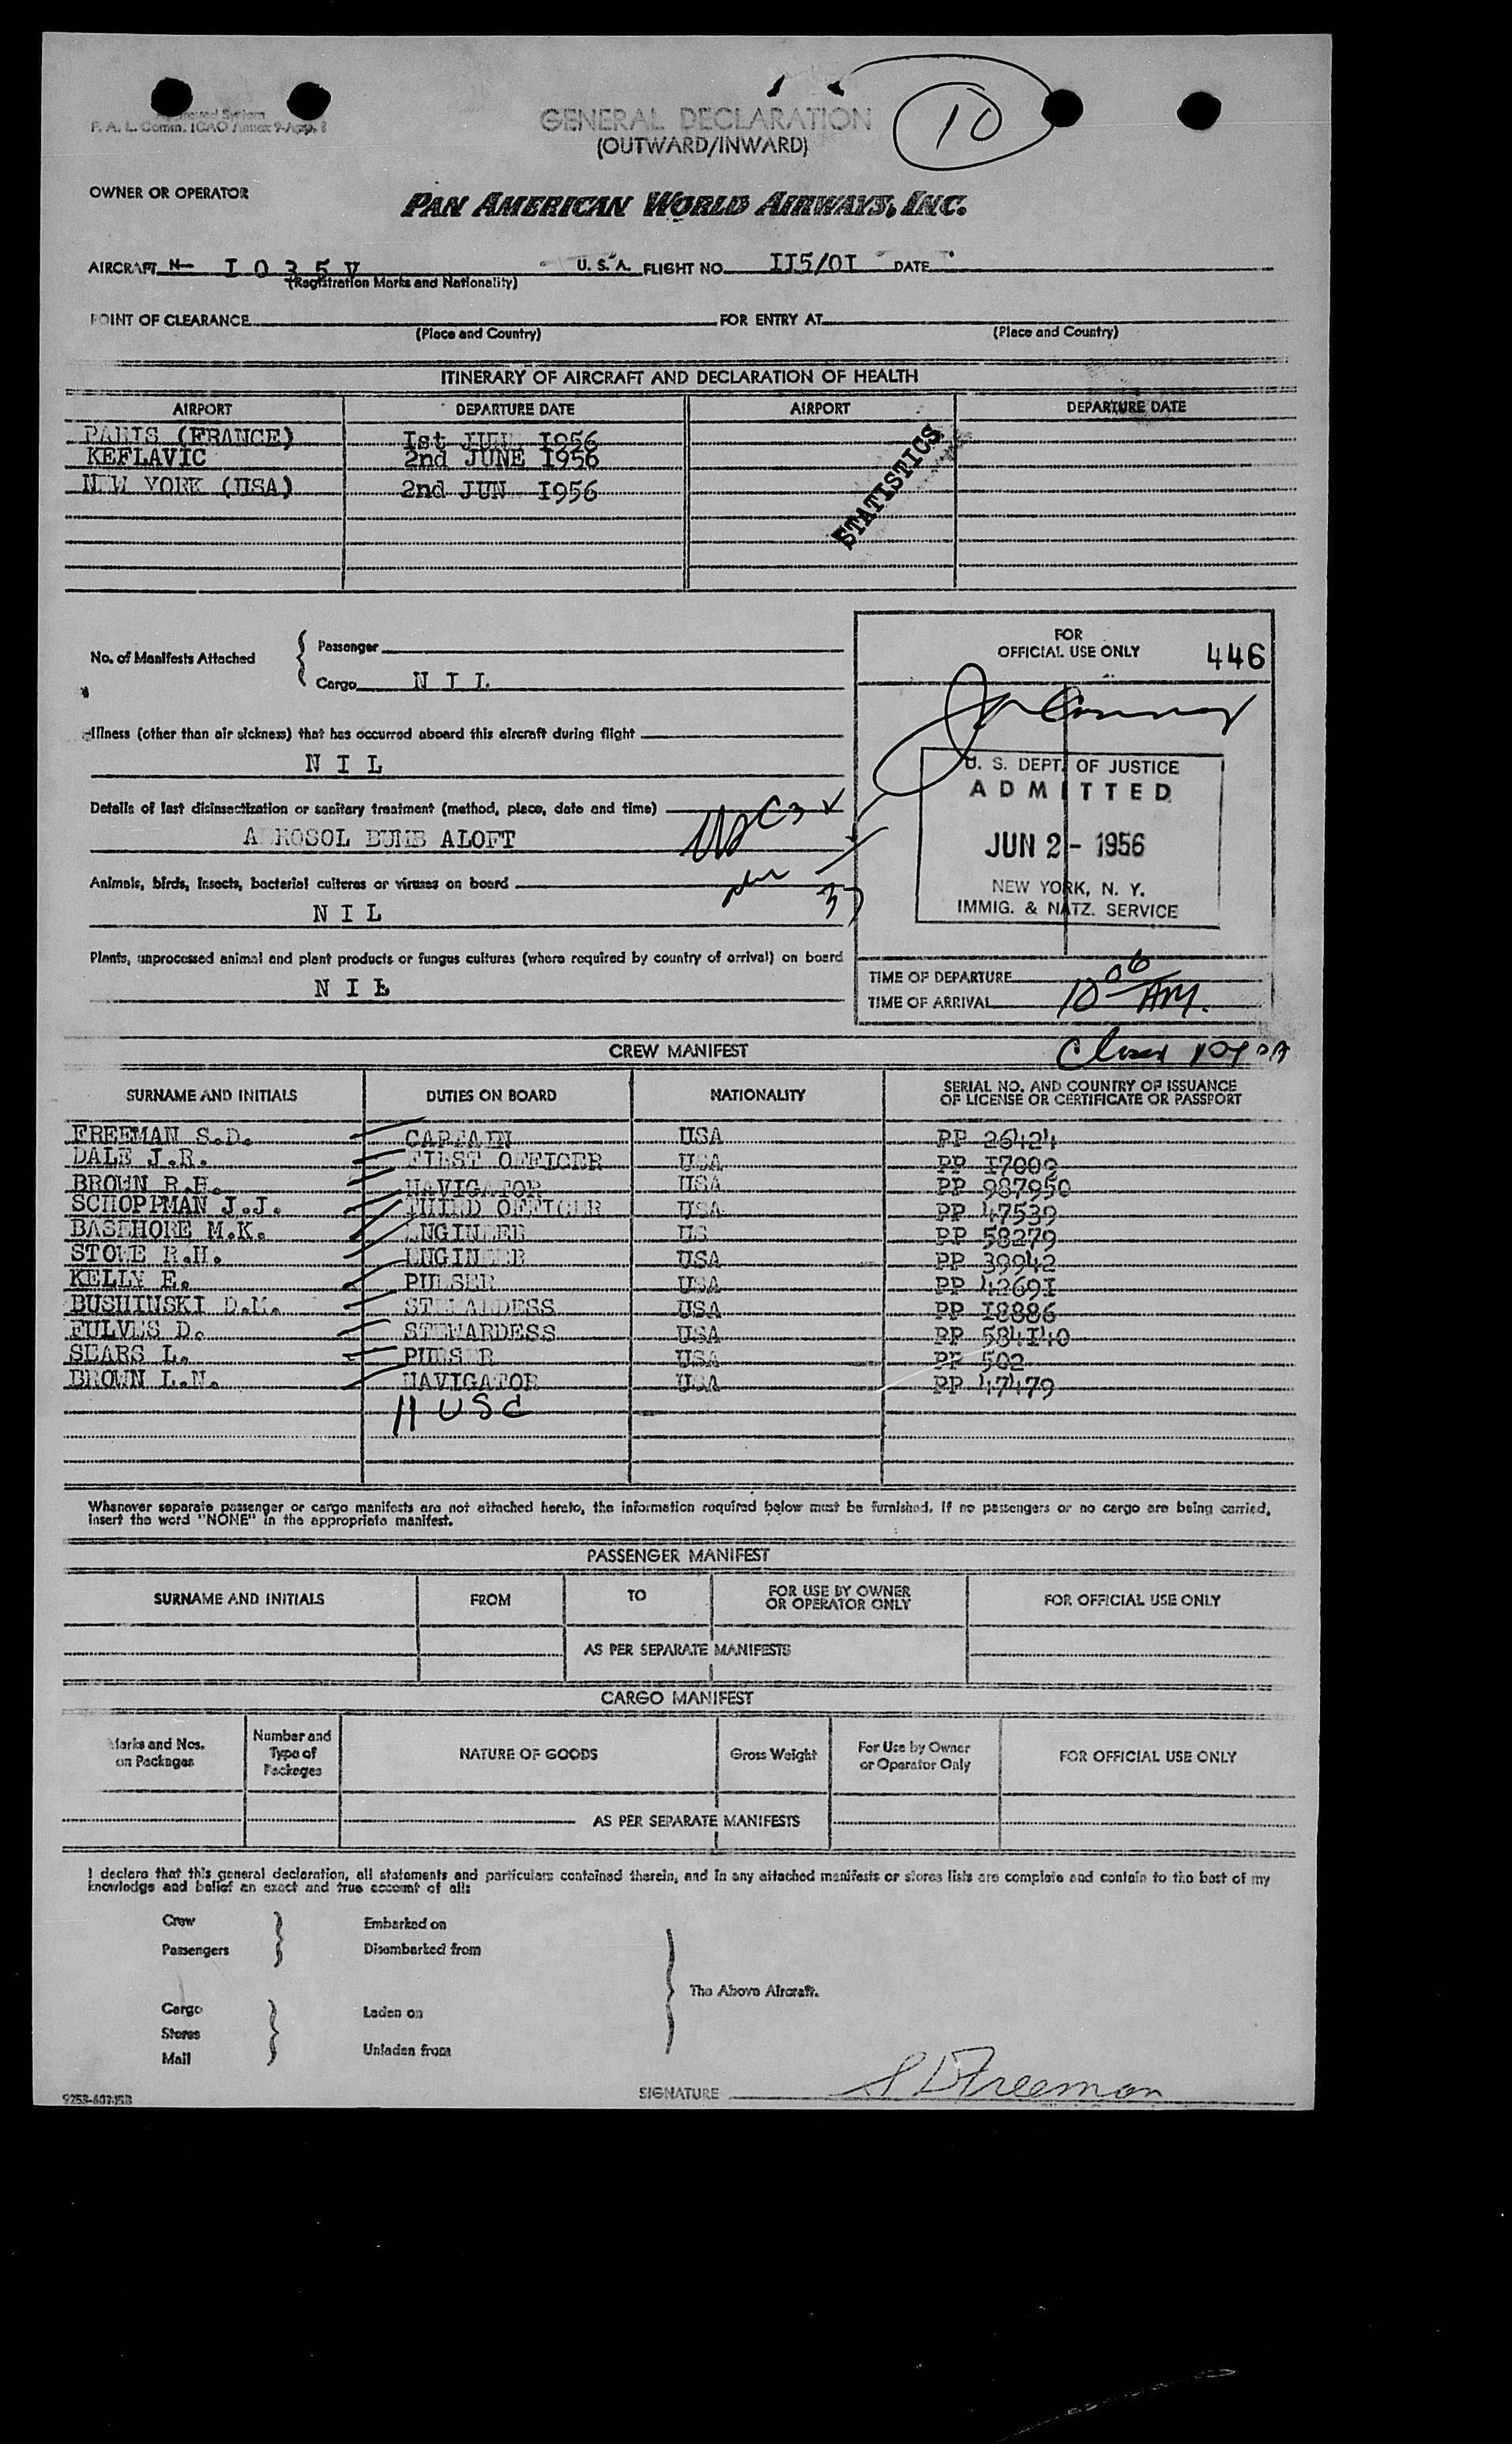 F. A. L. Comm. ICAO Annex 9-App. 1
GENERAL DECLARATION
(OUTWARD/INWARD)
10
OWNER OR OPERATOR
PAN AMERICAN WORLD AIRWAYS, INC.
AIRCRAFT N- I 0 3 5 V U. S. A. FLIGHT NO. II5/0I DATE
(Registration Marks and Nationality)
POINT OF CLEARANCE FOR ENTRY AT
(Place and Country) (Place and Country)
ITINERARY OF AIRCRAFT AND DECLARATION OF HEALTH
AIRPORT DEPARTURE DATE AIRPORT DEPARTURE DATE
PARIS (FRANCE) Ist JUNE I956
KEFLAVIC 2nd JUNE I956
NEW YORK (USA) 2nd JUNE I956
STATISTICS
FOR
OFFICIAL USE ONLY 446
No. of Manifests Attached
Passenger
Cargo N I L
Illness (other than air sickness) that has occurred aboard this aircraft during flight
N I L
Details of last disinsectization or sanitary treatment (method, place, date and time)
AEROSOL BUMB ALOFT
Animals, birds, insects, bacterial cultures or viruses on board
N I L
37
Plants, unprocessed animal and plant products or fungus cultures (where required by country of arrival) on board
N I L
U. S. DEPT. OF JUSTICE
ADMITTED
JUN 2 - 1956
NEW YORK, N. Y.
IMMIG. & NATZ. SERVICE
TIME OF DEPARTURE
TIME OF ARRIVAL 10 06 AM.
CREW MANIFEST
SURNAME AND INITIALS DUTIES ON BOARD NATIONALITY SERIAL NO. AND COUNTRY OF ISSUANCE
OF LICENSE OR CERTIFICATE OR PASSPORT
FREEMAN S.D. CAPTAIN USA PP 26424
DALE J.R. FIRST OFFICER USA PP I7009
BROWN R.H. NAVIGATOR USA PP 987950
SCHOPPMAN J.J. THIRD OFFICER USA PP 47539
BASEHORE M.K. ENGINEER US PP 58279
STOWE R.H. ENGINEER USA PP 39942
KELLY E. PURSER USA PP 4269I
BUSHINSKI D.M. STEWARDESS USA PP I8886
FULVES D. STEWARDESS USA PP 584I40
SEARS L. PURSER USA PP 502
BROWN L.N. NAVIGATOR USA PP 47479
11 USC
Whenever separate passenger or cargo manifests are not attached hereto, the information required below must be furnished. If no passengers or no cargo are being carried,
insert the word "NONE" in the appropriate manifest.
PASSENGER MANIFEST
SURNAME AND INITIALS FROM TO FOR USE BY OWNER
OR OPERATOR ONLY FOR OFFICIAL USE ONLY
AS PER SEPARATE MANIFESTS
CARGO MANIFEST
Marks and Nos.
on Packages Number and
Type of
Packages NATURE OF GOODS Gross Weight For Use by Owner
or Operator Only FOR OFFICIAL USE ONLY
AS PER SEPARATE MANIFESTS
I declare that this general declaration, all statements and particulars contained therein, and in any attached manifests or stores lists are complete and contain to the best of my
knowledge and belief an exact and true account of all:
Crew Embarked on
Passengers Disembarked from
The Above Aircraft.
Cargo Laden on
Stores
Mail Unladen from
SIGNATURE S D Freeman